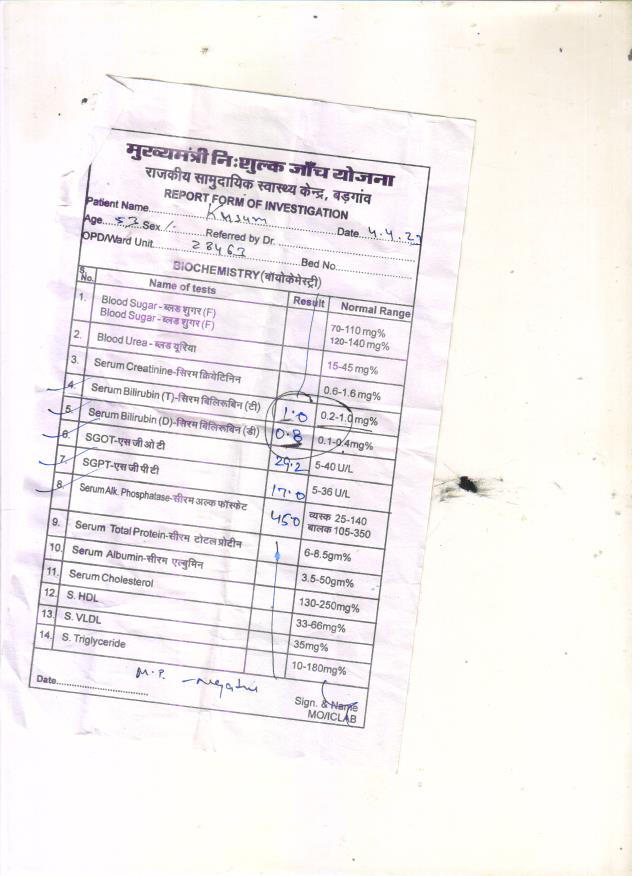 मुख्यमंत्री निःशुल्क जाँच योजना
राजकीय सामुदायिक स्वास्थ्य केन्द्र, बड़गांव
REPORT FORM OF INVESTIGATION
Patient Name.... Kusum Date 4.4.27
Age.... 53 Sex Referred by Dr. ....
OPD/Ward Unit.... 28463 Bed No....
BIOCHEMISTRY (बॉयोकेमेस्ट्री)
S. No. Name of tests Result Normal Range
1. Blood Sugar - ब्लड शुगर (F) 70-110 mg%
Blood Sugar - ब्लड शुगर (F) 120-140 mg%
2. Blood Urea - ब्लड यूरिया 15-45 mg%
3. Serum Creatinine-सिरम क्रियेटिनिन 0.6-1.6 mg%
4. Serum Bilirubin (T)-सिरम बिलिरूबिन (टी) 1.0 0.2-1.0 mg%
5. Serum Bilirubin (D)-सिरम बिलिरूबिन (डी) 0.8 0.1-0.4mg%
6. SGOT-एस जी ओ टी 29.2 5-40 U/L
7. SGPT-एस जी पी टी 17.0 5-36 U/L
8. Serum Alk. Phosphatase-सीरम अल्क फॉस्फेट 450 व्यस्क 25-140
बालक 105-350
9. Serum Total Protein-सीरम टोटल प्रोटीन 6-8.5gm%
10. Serum Albumin-सीरम एल्बुमिन 3.5-50gm%
11. Serum Cholesterol 130-250mg%
12. S. HDL 33-66mg%
13. S. VLDL 35mg%
14. S. Triglyceride 10-180mg%
M.P. - negative
Date....
Sign. & Name
MO/ICLAB